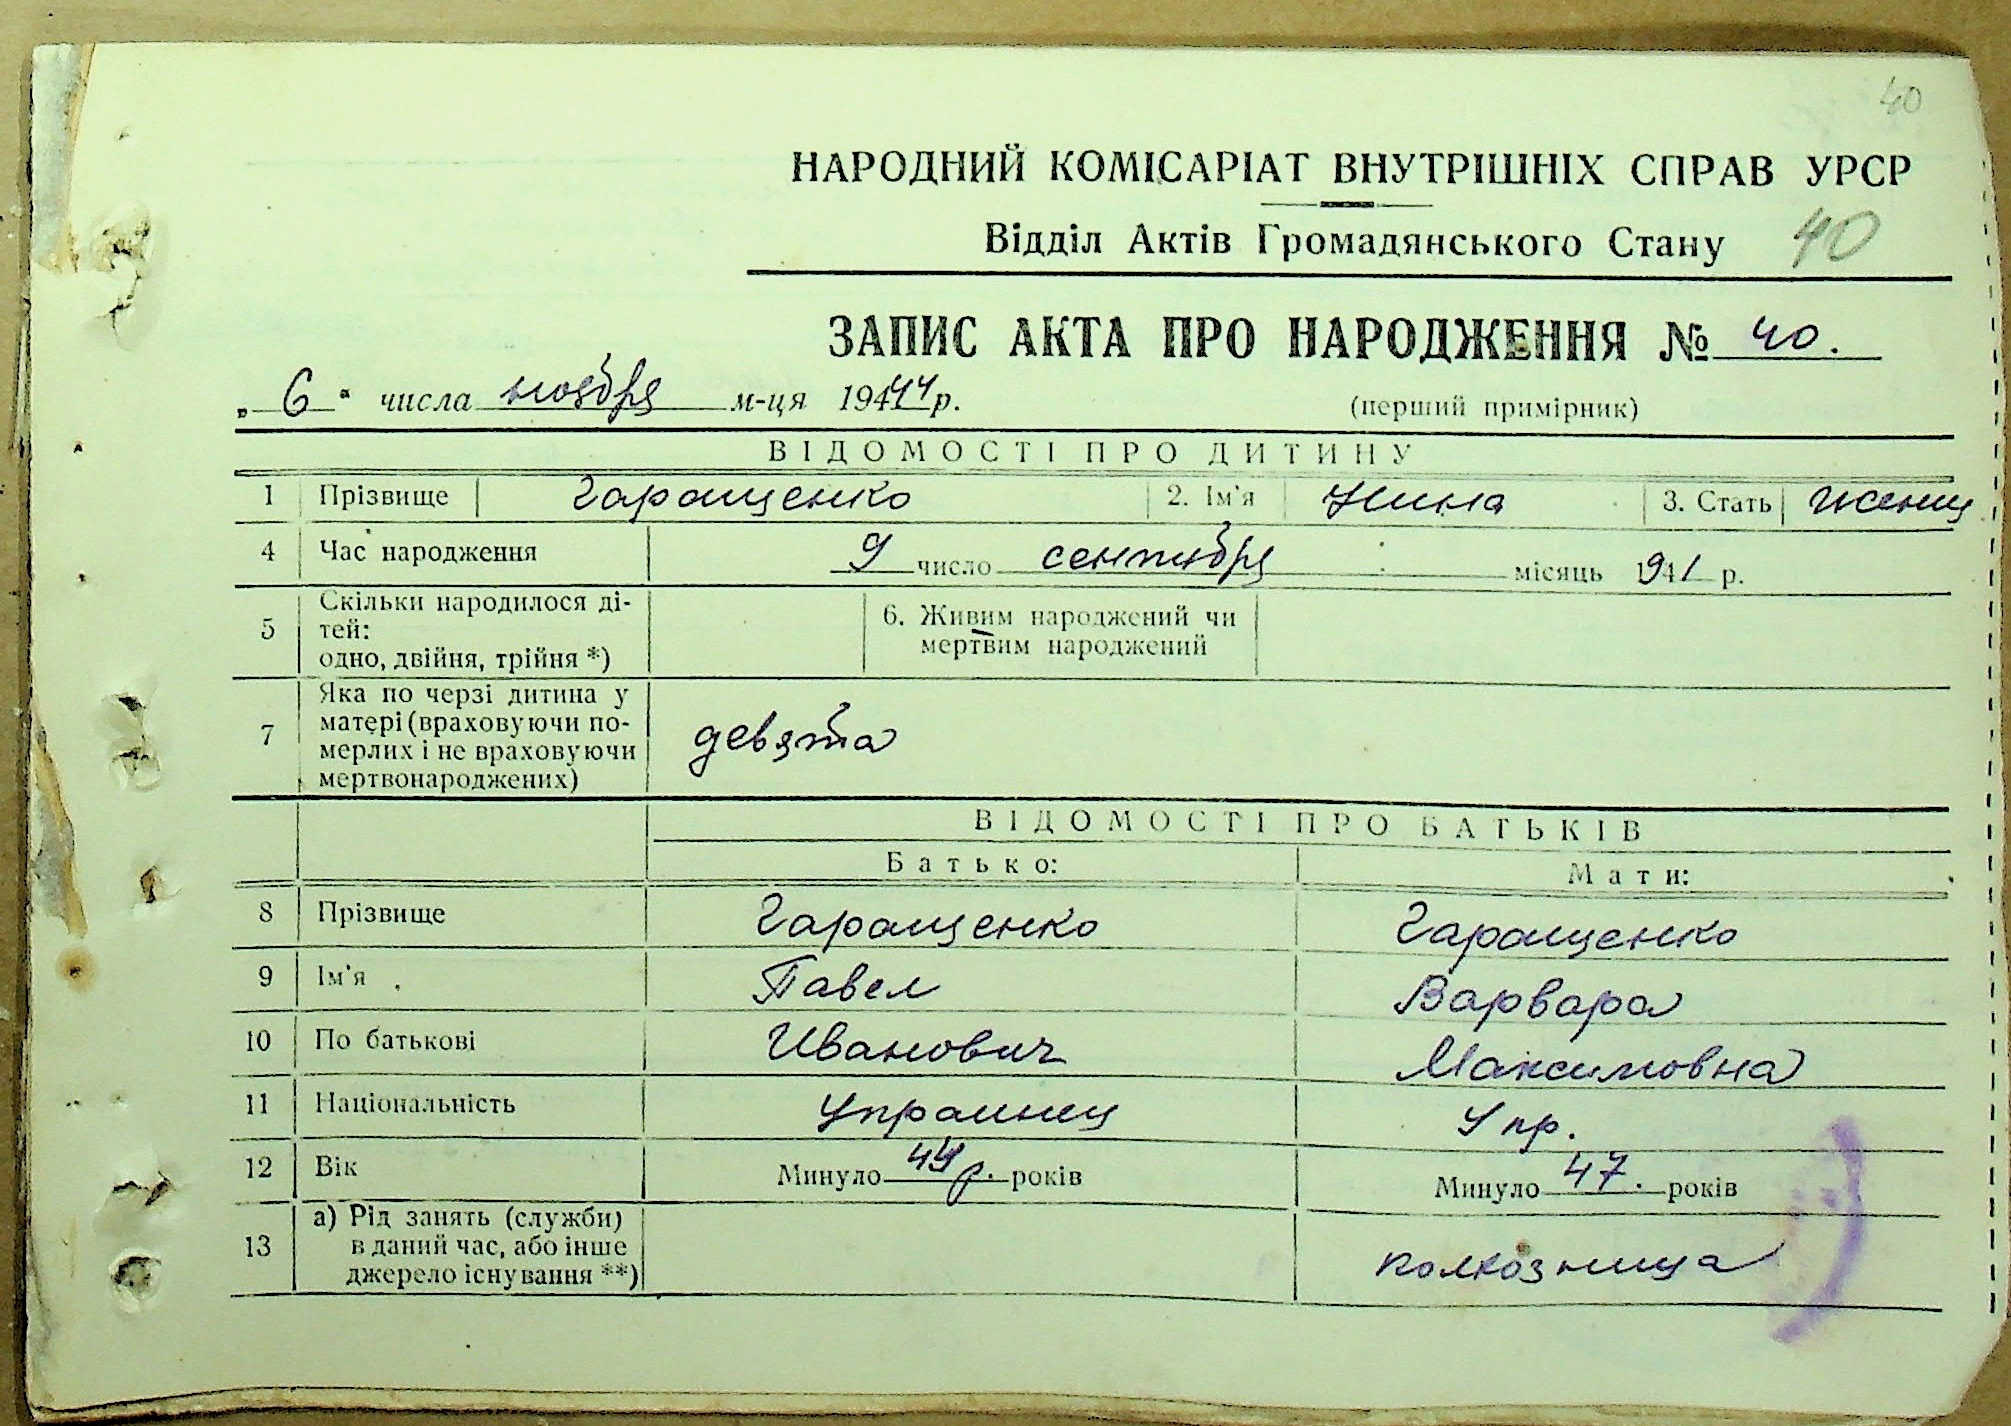 40
НАРОДНИЙ КОМІСАРІАТ ВНУТРІШНІХ СПРАВ УРСР
Відділ Актів Громадянського Стану 40
ЗАПИС АКТА ПРО НАРОДЖЕННЯ № 40.
„ 6 " числа ноября м-ця 1944 р. (перший примірник)
ВІДОМОСТІ ПРО ДИТИНУ
1 Прізвище Гаращенко 2. Ім'я Нина 3. Стать женщ
4 Час народження 9 число сентября місяць 1941 р.
5 Скільки народилося ді-
тей:
одно, двійня, трійня *)
6. Живим народжений чи
мертвим народжений
7 Яка по черзі дитина у
матері (враховуючи по-
мерлих і не враховуючи
мертвонароджених)
девята
ВІДОМОСТІ ПРО БАТЬКІВ
Батько: Мати:
8 Прізвище Гаращенко Гаращенко
9 Ім'я Павел Варвара
10 По батькові Иванович Максимовна
11 Національність Украинец Укр.
12 Вік Минуло 49 р. років Минуло 47. років
13 а) Рід занять (служби)
в даний час, або інше
джерело існування **)
колхозница